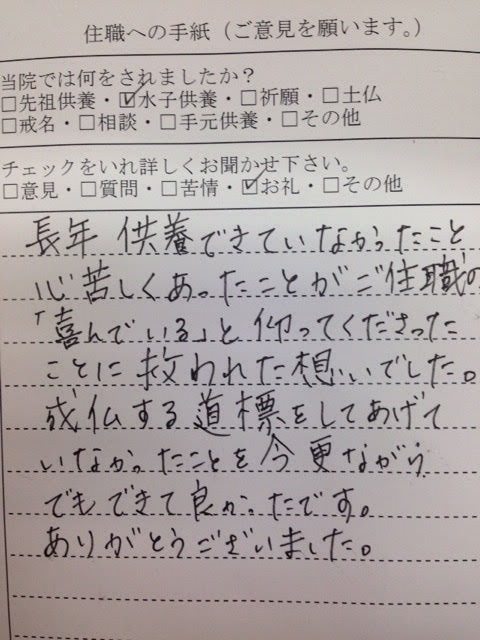 住職への手紙（ご意見を願います。）
当院では何をされましたか？
□先祖供養・☑水子供養・□祈願・□土仏
□戒名・□相談・□手元供養・□その他
チェックをいれ詳しくお聞かせ下さい。
□意見・□質問・□苦情・☑お礼・□その他
長年供養できていなかったこと
心苦しくあったことがご住職の
「喜んでいる」と仰ってくださった
ことに救われた想いでした。
成仏する道標をしてあげて
いなかったことを今更ながら
でもできて良かったです。
ありがとうございました。